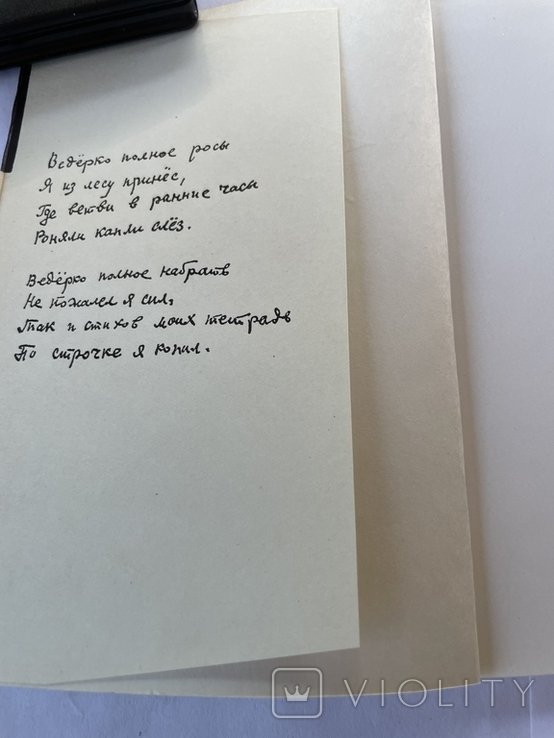 Ведёрко полное росы
Я из лесу принёс,
Где ветви в ранние часы
Роняли капли слёз.
Ведёрко полное набрать
Не пожалел я сил,
Так и стихов моих тетрадь
По строчке я копил.
VIOLITY